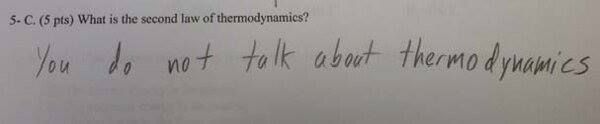 5- C. (5 pts) What is the second law of thermodynamics?
You do not talk about thermodynamics